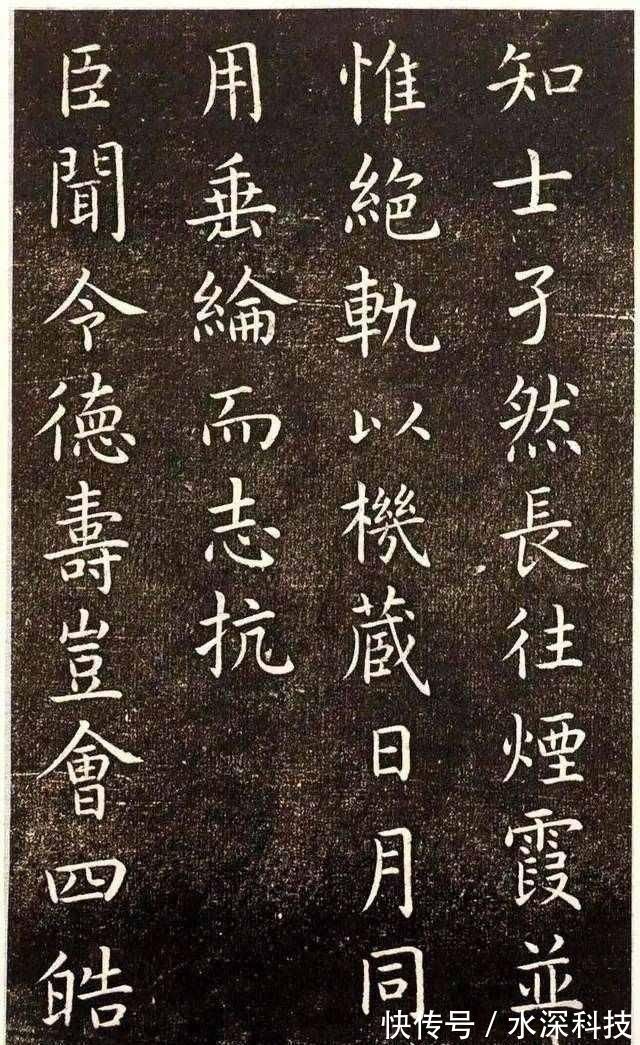 知士孑然長往煙霞並
惟絕軌以機蔵日月同
用垂綸而志抗
臣聞令德壽豈會四皓
快传号/水深科技